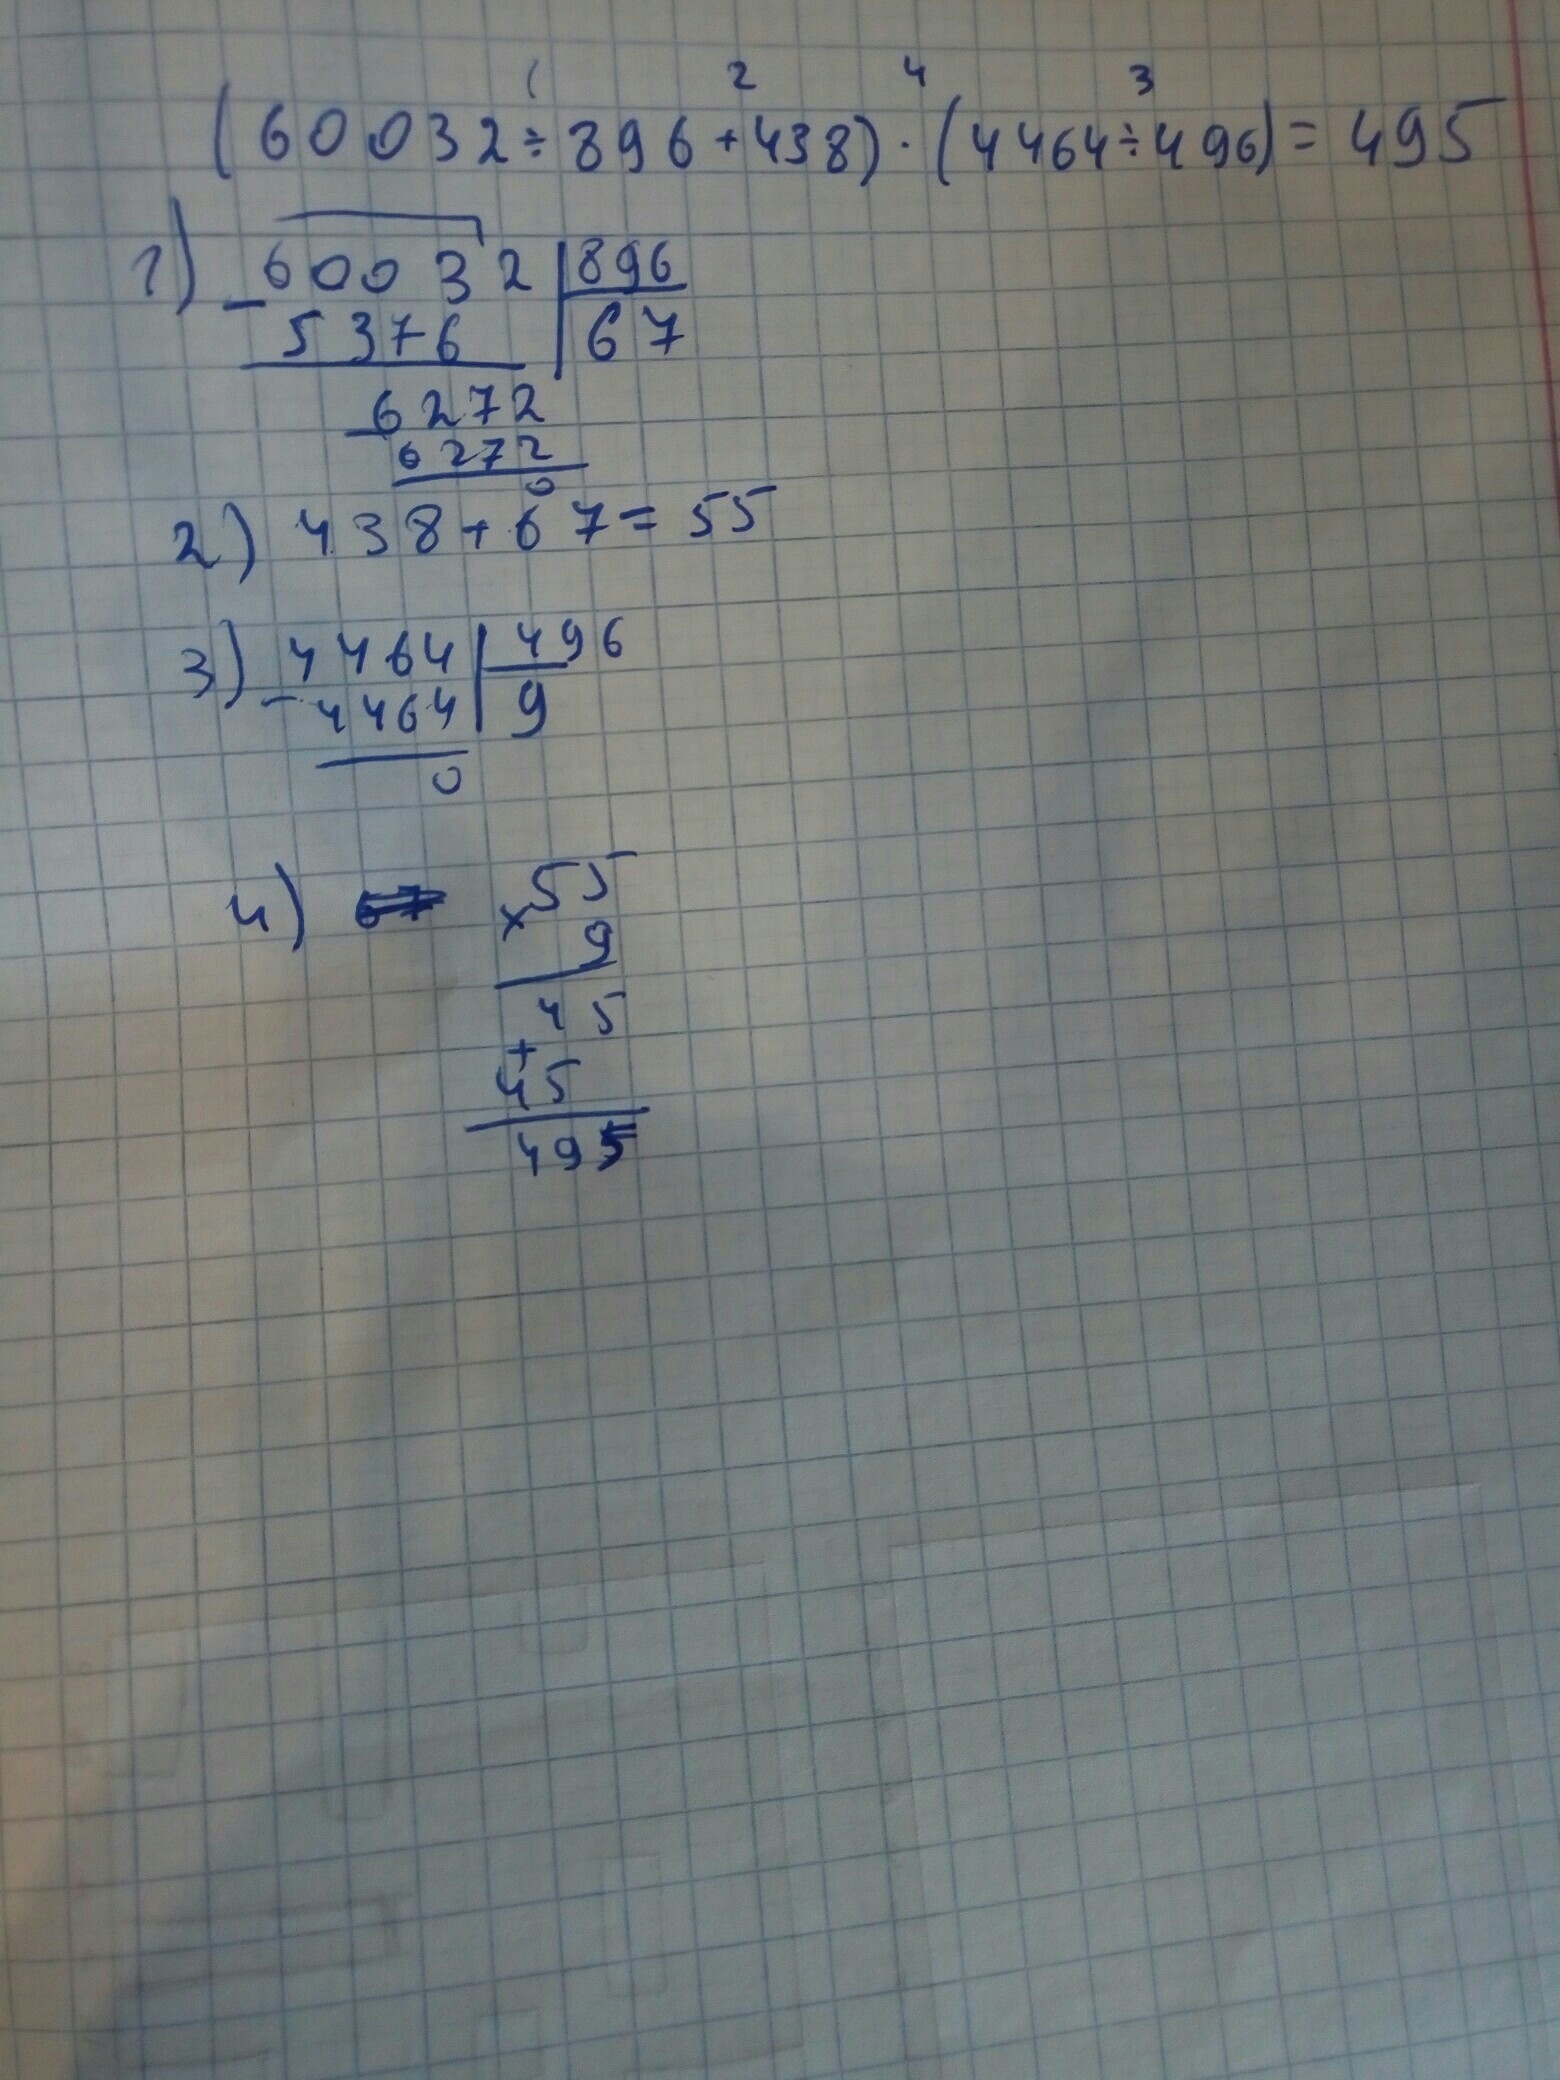 1 2 4 3
(60032÷896+438)·(4464÷496)=495
1) 60032 | 896
- 5376 | 67
6272
- 6272
0
2) 438+67=55
3) 4464 | 496
- 4464 | 9
0
4) 55
× 9
45
+
45
495